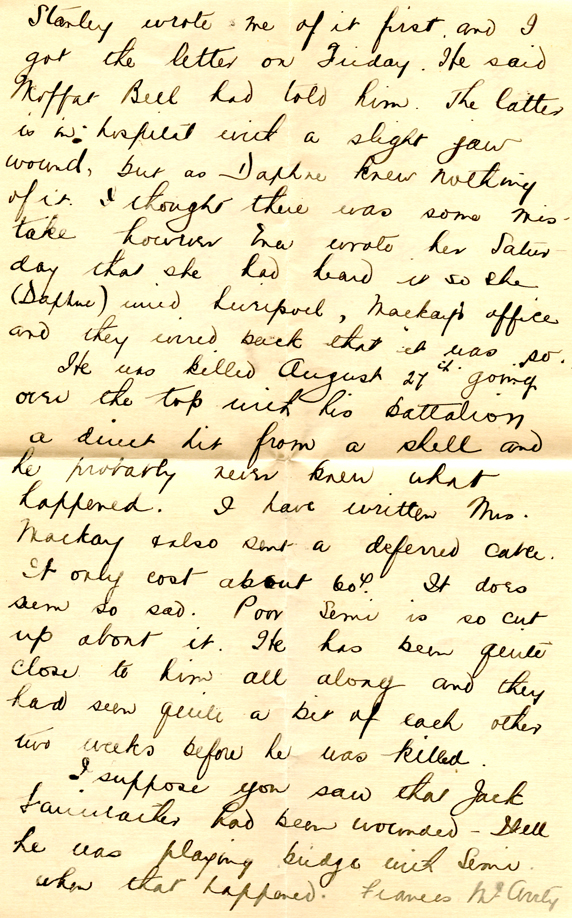 Stanley wrote me of it first and I
got the letter on Friday. He said
Moffat Bell had told him. The latter
is in hospital with a slight jaw
wound, but as Daphne knew nothing
of it. I thought there was some mis-
take however Ena wrote her Satur-
day that she had heard it so she
(Daphne) wired Liverpool, Mackay's office
and they wired back that it was so.
He was killed August 27th going
over the top with his battalion
a direct hit from a shell and
he probably never knew what
happened. I have written Mrs.
Mackay & also sent a deferred cable.
It only cost about 60¢. It does
seem so sad. Poor Semi is so cut
up about it. He has been quite
close to him all along and they
had seen quite a bit of each other
two weeks before he was killed.
I suppose you saw that Jack
Fairweather had been wounded -
he was playing bridge with Semi
when that happened. Frances McAvity